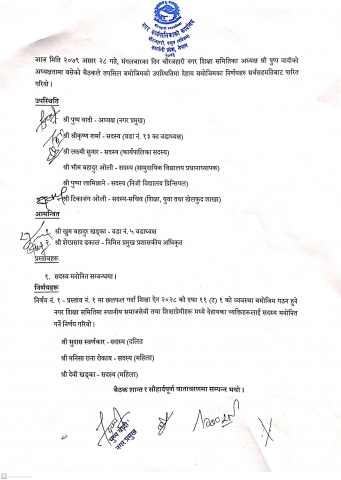 नगर कार्यपालिकाको कार्यालय
आज मिति २०७९ असार २८ गते, मंगलबारका दिन चौरजहारी नगर शिक्षा समितिका अध्यक्ष श्री पुष्प बादीको
अध्यक्षतामा बसेको बैठकले तपसिल बमोजिमको उपस्थितिमा देहाय बमोजिमका निर्णयहरु सर्वसहमतिबाट पारित
गरियो ।
उपस्थिति
श्री पुष्प बादी - अध्यक्ष (नगर प्रमुख)
श्री श्रीकृष्ण शर्मा - सदस्य (वडा नं. १३ का वडाध्यक्ष)
श्री लक्ष्मी सुनार - सदस्य (कार्यपालिका सदस्य)
श्री भीम बहादुर ओली - सदस्य (सामुदायिक विद्यालय प्रधानाध्यापक)
श्री पुष्पा लामिछाने - सदस्य (निजी विद्यालय प्रिन्सिपल)
श्री टिकाजंग ओली - सदस्य-सचिव (शिक्षा, युवा तथा खेलकुद शाखा)
आमन्त्रित
१. श्री खुम बहादुर खड्का - वडा नं. ५ वडाध्यक्ष
२. श्री शेरप्रसाद ढकाल - निमित्त प्रमुख प्रशासकीय अधिकृत
प्रस्तावहरू
१. सदस्य मनोनित सम्बन्धमा ।
निर्णयहरू
निर्णय नं. १ - प्रस्ताव नं. १ मा छलफल गर्दा शिक्षा ऐन २०२८ को दफा ११ (ट) १ को व्यवस्था बमोजिम गठन हुने
नगर शिक्षा समितिमा स्थानीय समाजसेवी तथा शिक्षाप्रेमीहरु मध्ये देहायका व्यक्तिहरुलाई सदस्य मनोनित
गर्ने निर्णय गरियो ।
श्री सुदास स्वर्णकार - सदस्य (दलित
श्री मनिसा राना रोकाय - सदस्य (महिला)
श्री देवी खड्का - सदस्य (महिला)
बैठक शान्त र सौहार्दपूर्ण वातावरणमा सम्पन्न भयो ।
पुष्प बादी
नगर प्रमुख